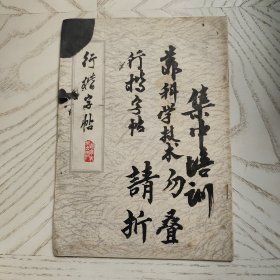 集中培训
靠科学技术勿叠
行楷字帖 請折
行楷字帖